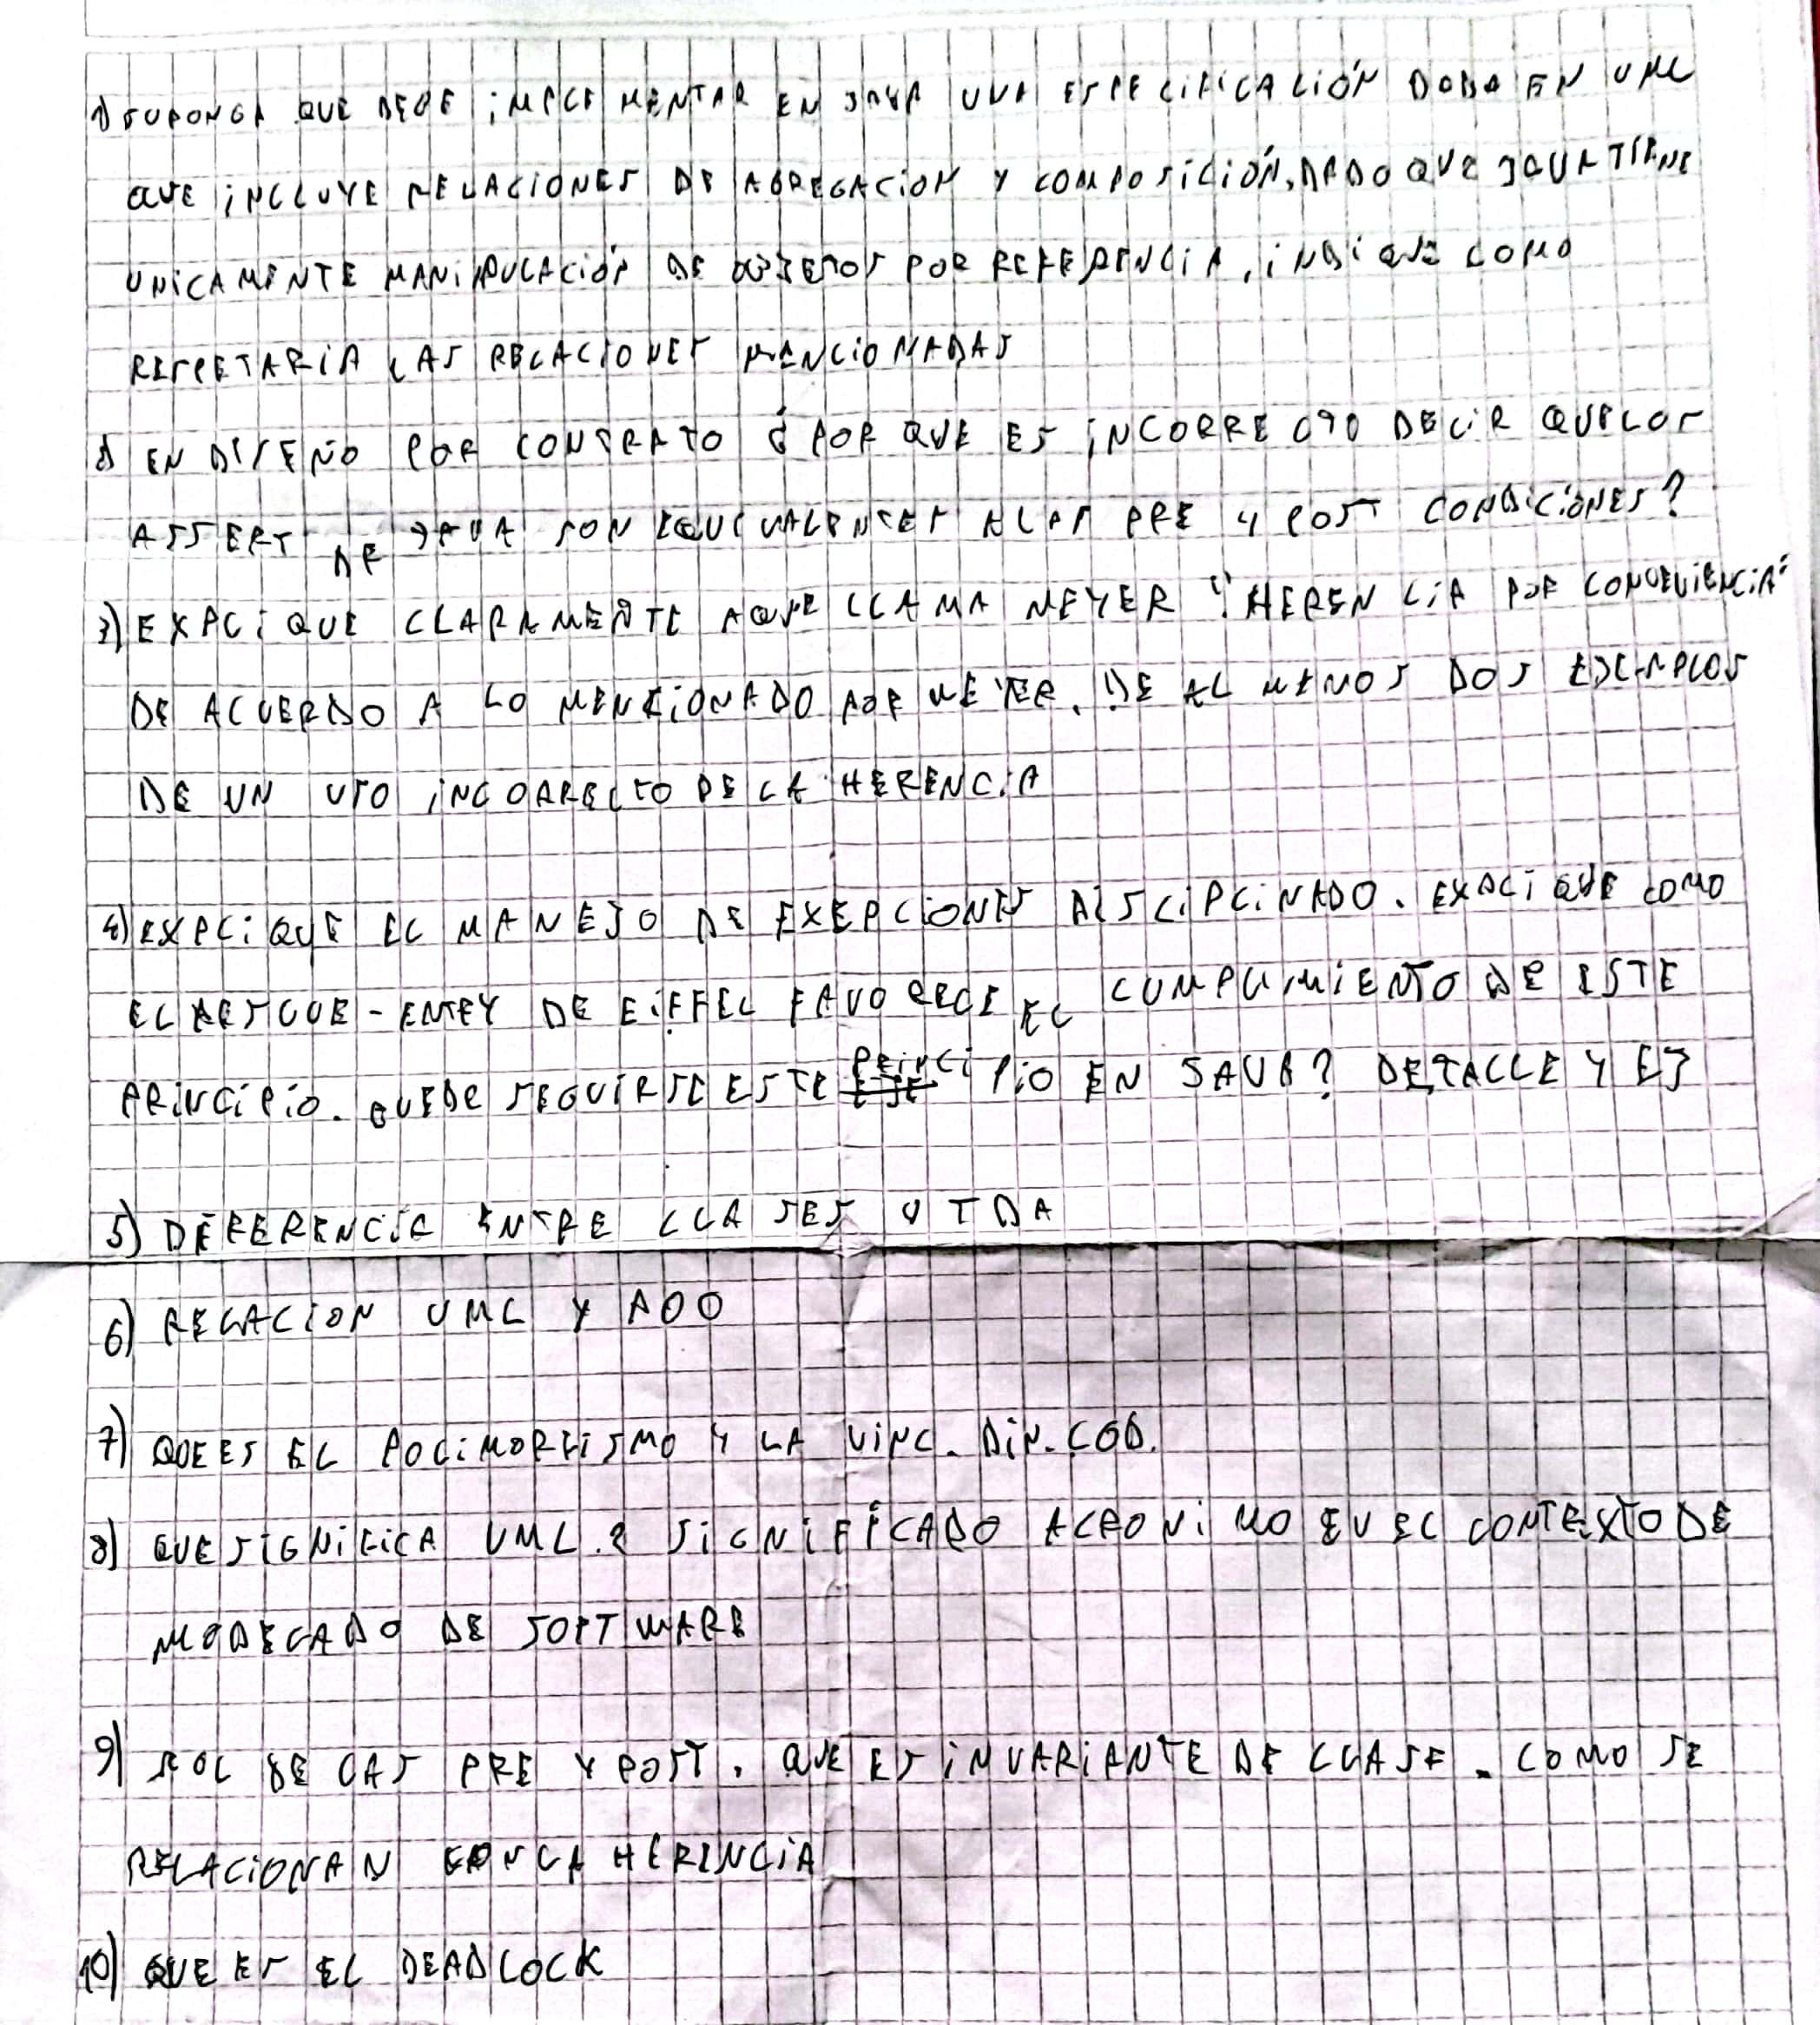 1) SUPONGA QUE DEBE iMPLEMENTAR EN JAVA UNA ESPECIFICACIÓN DADA EN UML
QUE INCLUYE RELACIONES DE AGREGACION Y COMPOSICIÓN, DADO QUE JAVA TIENE
UNICAMENTE MANIPULACIÓN DE OBJETOS POR REFERENCIA, INDIQUE COMO
RESPETARIA LAS RELACIONES MENCIONADAS
2) EN DISEÑO POR CONTRATO ¿POR QUE ES INCORRECTO DECIR QUE LOS
ASSERT DE JAVA SON EQUIVALENTES A LAS PRE Y POST CONDICIONES?
3) EXPLIQUE CLARAMENTE A QUE LLAMA MEYER "HERENCIA POR CONVENIENCIA"
DE ACUERDO A LO MENCIONADO POR MEYER. DE AL MENOS DOS EJEMPLOS
DE UN USO INCORRECTO DE LA HERENCIA
4) EXPLIQUE EL MANEJO DE EXEPCIONES DISCIPLINADO. EXPLIQUE COMO
EL RESCUE-ENTRY DE EIFFEL FAVORECE EL CUMPLIMIENTO DE ESTE
PRINCIPIO. PUEDE SEGUIRSE ESTE PRINCIPIO EN JAVA? DETALLE Y EJ
5) DEFERENCIA ENTRE CLASES Y TDA
6) RELACION UML Y AOO
7) QUE ES EL POLIMORFISMO Y LA VINC. DIN. COD.
8) QUE SIGNIFICA UML? SIGNIFICADO ACRONIMO EN EL CONTEXTO DE
MODELADO DE SOFTWARE
9) ROL DE LAS PRE Y POST. QUE ES INVARIANTE DE CLASE. COMO SE
RELACIONAN CON LA HERENCIA
10) QUE ES EL DEADLOCK